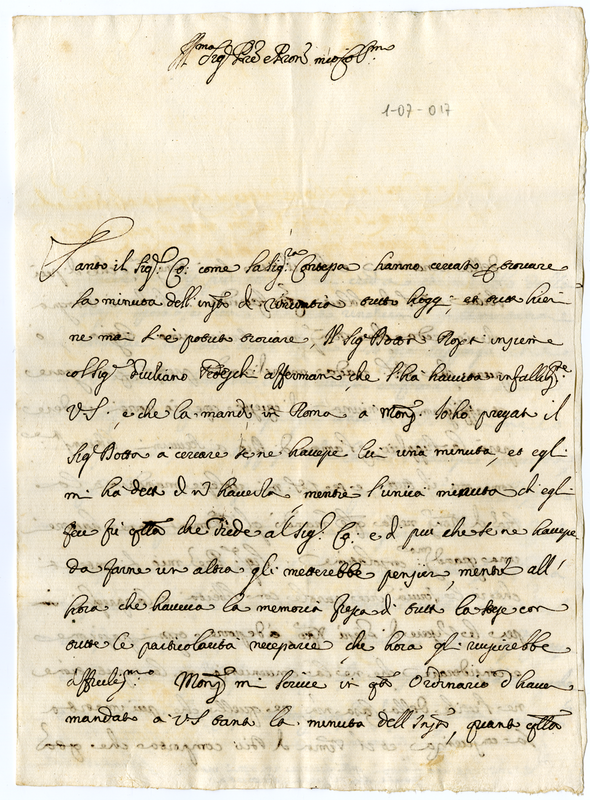 Ill.mo Sig.r P.re e Pron mio Col.mo
1-07-017
Tanto il Sig.r Co: come la Sig.ra Contessa hanno cercato trovare
la minuta dell' di rinuntia tutto hogg, et tutt hieri
ne mai s'è potuta trovare, Il Sig.r Dottor insieme
col Sig.r Giuliano afferman, che l'ha havuta infallib.te
V.S., e che la mandò in Roma a Mong.r Io hò pregat il
Sig.r Dotto a cercare se ne havesse lui una minuta, et egli
mi ha dett d n haverla, mentre l'unica minuta ch egli
fece fù q.lla che diede al Sig.r Co: e d più che se ne havesse
da farne un altra gli metterebbe pensier, mentre all'
hora che haveva la memoria fresca di tutt la
tutte le particolarità necessarie, che hora gli riuscirebbe
difficiliss.mo Mong.r mi scrive in q.to Ordinario d haver
mandato a V.S. tant la minuta dell' , quanto q.lla